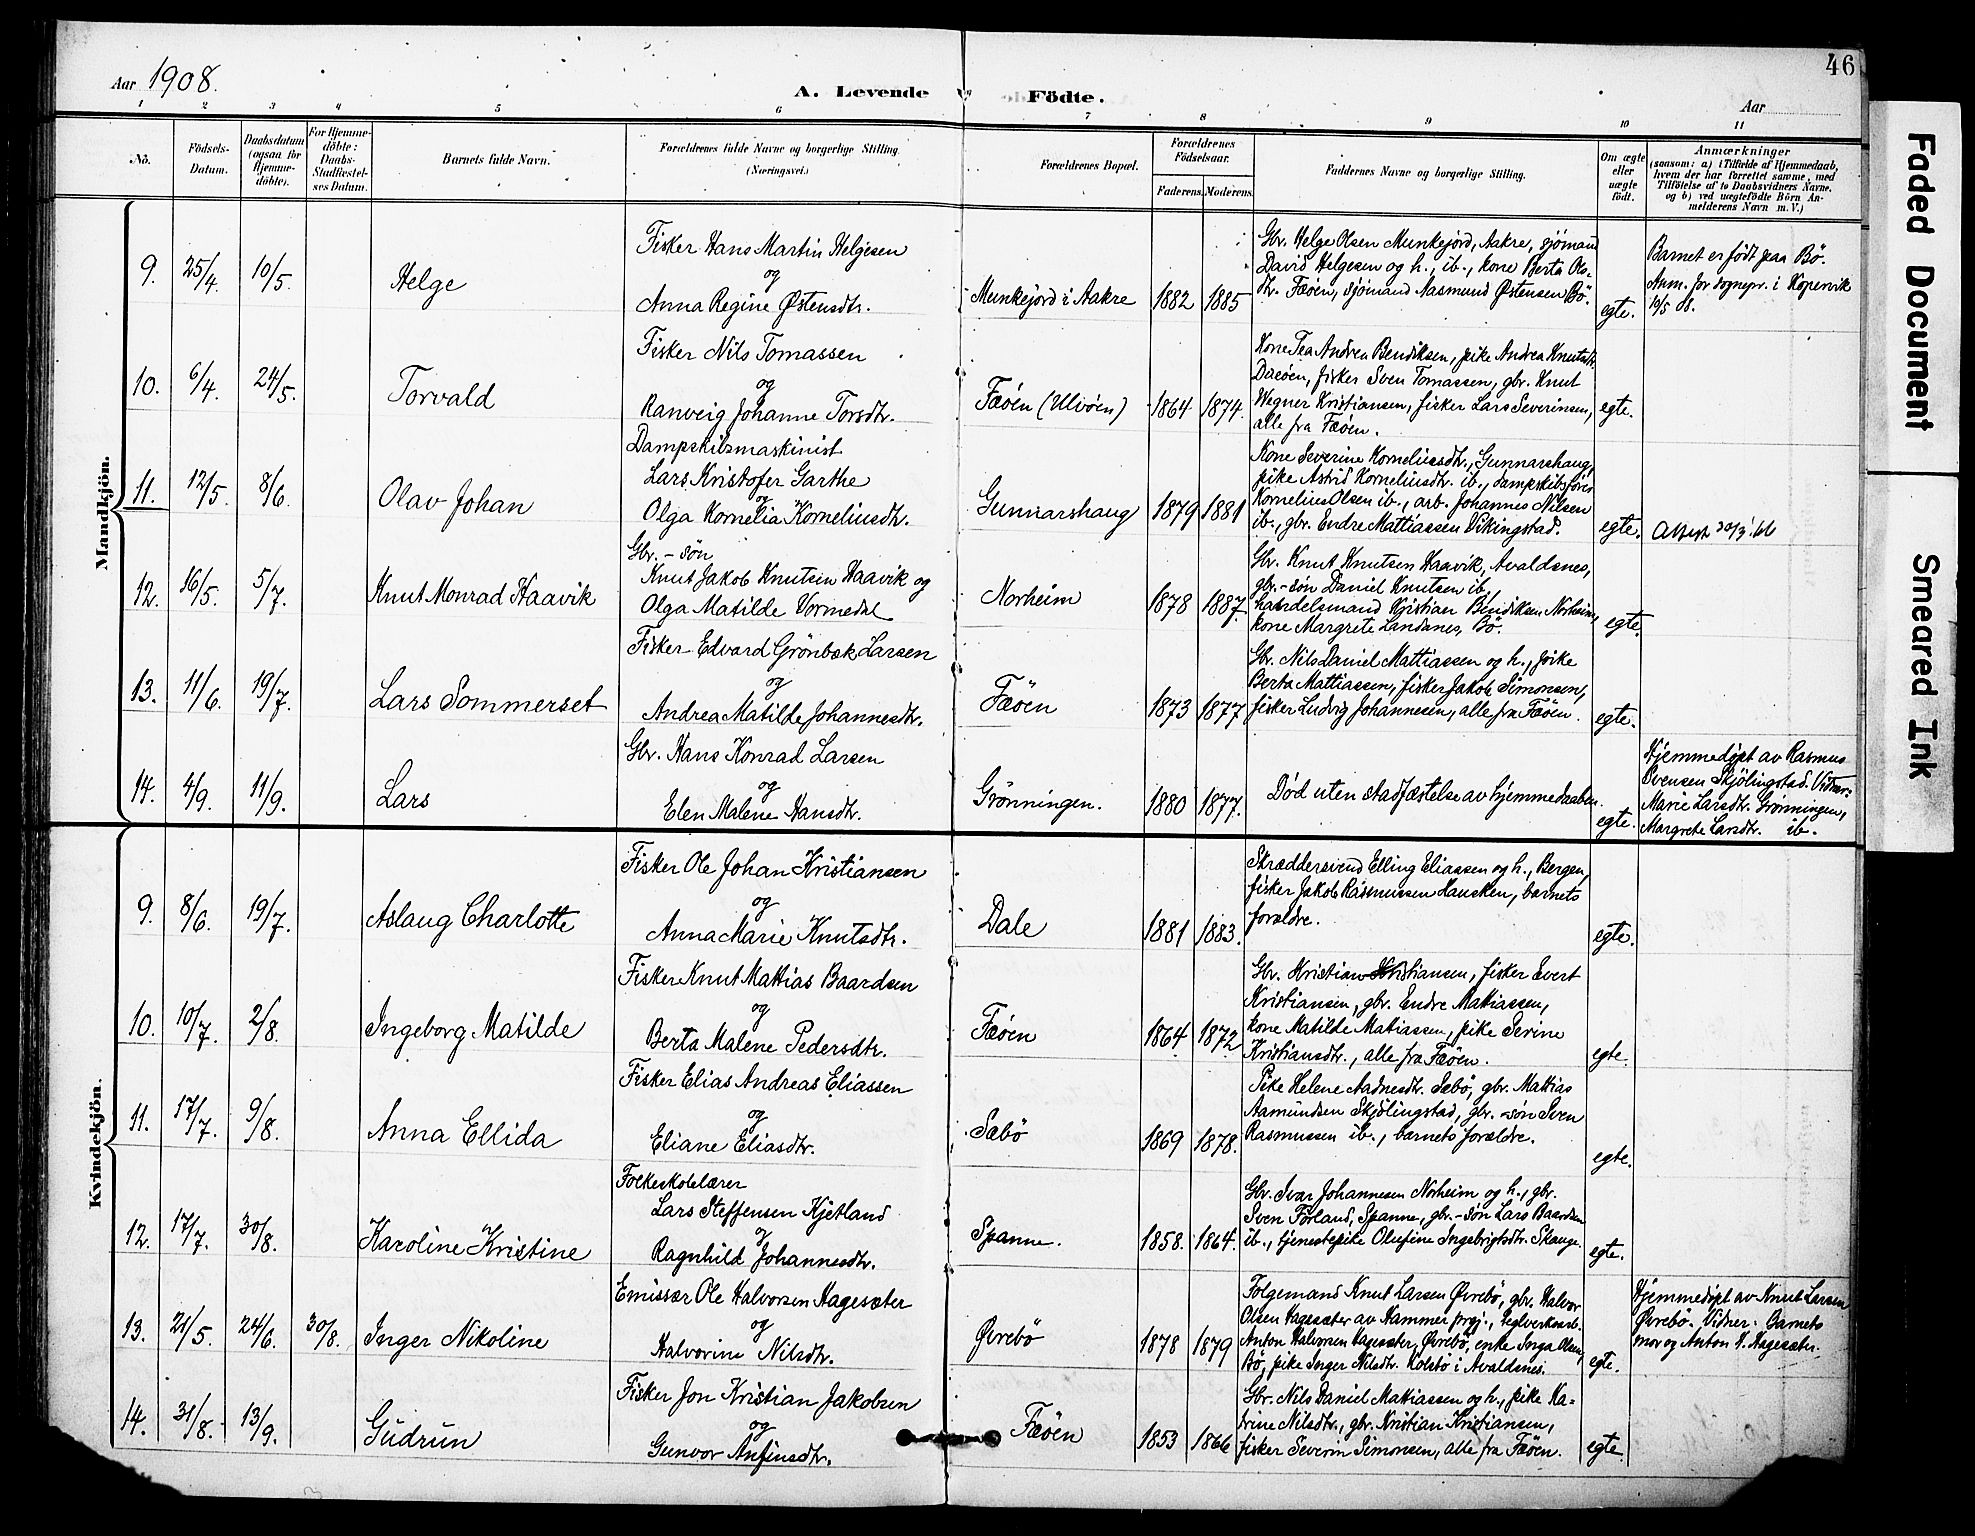 46
Aar 1908.
A. Levende Födte.
Aar
1 2 3 4 5 6 7 8 9 10 11
No.
Födsels-
Datum.
Daabsdatum
(ogsaa for
Hjemme-
döbte).
For Hjemme-
döbte:
Daabs-
Stadfæstel-
ses Datum.
Barnets fulde Navn.
Forældrenes fulde Navne og borgerlige Stilling
(Næringsvei.)
Forældrenes Bopæl.
Forældrenes
Födselsaar.
Faderens. Moderens.
Faddernes Navne og borgerlige Stilling.
Om ægte
eller
uægte
födt.
Anmærkninger
(saasom: a) i Tilfælde af Hjemmedaab,
hvem der har forrettet samme, med
Tilföielse af to Daabsvidners Navne.
og b) ved uægtefödte Börn An-
melderens Navn m. V.)
Mandkjön.
9. 25/4. 10/5.
Helge
Fisker Hans Martin Helgesen
og
Anna Regine Østensdtr.
Munkejord i Aakre 1882 1885
Gbr. Helge Olsen Munkejord, Aakre, sjömand
David Helgesen og h., ib., kone Berta Ols-
dtr. Fæöen, sjömand Aasmund Østensen Bö.
egte.
Barnet er födt paa Bö.
Anm. for sognepr. i Kopervik
10/5 08.
10. 6/4. 24/5.
Torvald
Fisker Nils Tomassen
og
Ranveig Johanne Torsdtr.
Fæöen (Ulvöen) 1864 1874.
Kone Tea Andrea Bendiksen, pike Andrea Knutsdtr.
fisker Sven Tomassen, gbr. Knut
Wegner Kristiansen, fisker Lars Severinsen,
alle fra Fæöen.
egte.
11. 12/5. 8/6.
Olav Johan
Dampskibsmaskinist
Lars Kristofer Garthe
og
Olga Kornelia Korneliusdtr.
Gunnarshaug 1879 1881
Kone Severine Korneliusdtr., Gunnarshaug,
pike Astrid Korneliusdtr. ib., dampskibsförer
Kornelius Olsen ib., arb. Johannes Nilsen
ib., gbr. Endre Mattiassen Vikingstad.
egte.
Attest 30/3 '66
12. 16/5. 5/7.
Knut Monrad Haavik
Gbr.-sön
Knut Jakob Knutsen Haavik og
Olga Matilde Vormedal
Norheim 1878 1887.
Gbr. Knut Knutsen Haavik, Avaldsnes,
gbr.-sön Daniel Knutsen ib.,
handelsmand Kristian Bendiksen Norheim,
kone Margrete Landanes, Bö.
egte.
13. 11/6. 19/7.
Lars Sommerset
Fisker Edvard Grönbæk Larsen
og
Andrea Matilde Johannesdtr.
Fæöen 1873 1877
Gbr. Nils Daniel Mattiassen og h., pike
Berta Mattiassen, fisker Jakob Simonsen,
fisker Ludvig Johannesen, alle fra Fæöen.
egte.
14. 4/9. 11/9.
Lars
Gbr. Hans Konrad Larsen
og
Elen Malene Hansdtr.
Grönningen. 1880 1877.
Död uten stadfæstelse av hjemmedaaben.
egte.
Hjemmedöpt av Rasmus
Svensen Skjölingstad. Vidner:
Marie Larsdtr. Grönningen,
Margrete Larsdtr. ib.
Kvindekjön.
9. 8/6. 19/7.
Aslaug Charlotte
Fisker Ole Johan Kristiansen
og
Anna Marie Knutsdtr.
Dale 1881 1883.
Skræddersvend Elling Eliassen og h., Bergen,
fisker Jakob Rasmussen Hausken, barnets
forældre.
egte.
10. 10/7. 2/8.
Ingeborg Matilde
Fisker Knut Mattias Baardsen
og
Berta Malene Pedersdtr.
Fæöen 1864 1872
Gbr. Kristian Kristiansen, fisker Evert
Kristiansen, gbr. Endre Mattiassen,
kone Matilde Mattiassen, pike Serine
Kristiansdtr., alle fra Fæöen.
egte.
11. 17/7. 9/8.
Anna Ellida
Fisker Elias Andreas Eliassen
og
Eliane Eliasdtr.
Sæbö 1869 1878.
Pike Helene Aadnesdtr. Sæbö, gbr. Mattias
Aamundsen Skjölingstad, gbr.-sön Sven
Rasmussen ib., barnets forældre.
egte.
12. 17/7. 30/8.
Karoline Kristine
Folkeskolelærer
Lars Steffensen Kjetland
og
Ragnhild Johannesdtr.
Spanne. 1858. 1864.
Gbr. Ivar Johannesen Norheim og h., gbr.
Sven Förland, Spanne, gbr.-sön Lars Baardsen
ib., tjenestepike Olufine Ingebrigtsdtr. Skaage.
egte.
13. 21/5. 24/6. 30/8.
Inger Nikoline
Emissær Ole Halvorsen Hagesæter
og
Halvorine Nilsdtr.
Øvrebö 1878 1879
Folgemand Knut Larsen Øvrebö, gbr. Halvor
Olsen Hagesæter av Hammer prgj., teglverksarb.
Anton Halvorsen Hagesæter, Øvrebö, enke Inga Olsen,
Bö, pike Inger Nilsdtr. Kolstö i Avaldsnes.
egte.
Hjemmedöpt av Knut Larsen
Øvrebö. Vidner: Barnets
mor og Anton H. Hagesæter.
14. 31/8. 13/9.
Gudrun
Fisker Jon Kristian Jakobsen
og
Gunvor Anfinsdtr.
Fæöen 1853 1866
Gbr. Nils Daniel Mattiassen og h., pike Ka-
trine Nilsdtr., gbr. Kristian Kristiansen,
fisker Severin Simonsen, alle fra Fæöen.
egte.
Faded Document
Smeared Ink